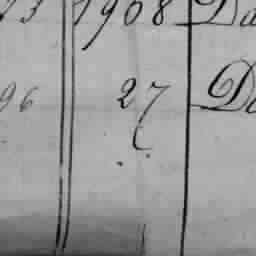 73 1908 Da
96 27 Da